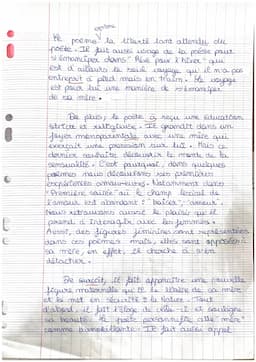 poème la liberté tant attendu du
poète. Il fait aussi usage de la poésie pour
s'émanciper dans "Rêve pour l'hiver" qui
est d'ailleurs le seul voyage qu'il n'a pas
à pied mais en train. Le voyage
est pour lui une manière de s'émanciper
de sa mère.
De plus, le poète a reçu une éducation
stricte et religieuse. Il grandit dans un
foyer monoparentale avec une mère qui
exerçait une pression sur lui. Mais ce
dernier souhaite découvrir le monde de la
sensualité. C'est pourquoi, dans quelques
poèmes nous découvrons ses premières
expériences amoureuses. Notamment dans
"Première soirée" où le champ lexical de
l'amour est abondant : "baiser", "amour".
Nous retrouvons aussi le plaisir qu'il
prend à interagir avec les femmes.
Aussi, des figures féminines sont représentées
dans ces poèmes mais, elles sont opposées à
sa mère, en effet, il cherche à s'en
détacher.
De surcoit, il fait apparaître une nouvelle
figure maternelle qui le de sa mère
et le met en sécurité : la Nature. Tout
d'abord, il fait l'éloge de celle-ci et souligne
sa beauté. Le poète personnifie cette mère
comme bienveillante. Il fait aussi appel